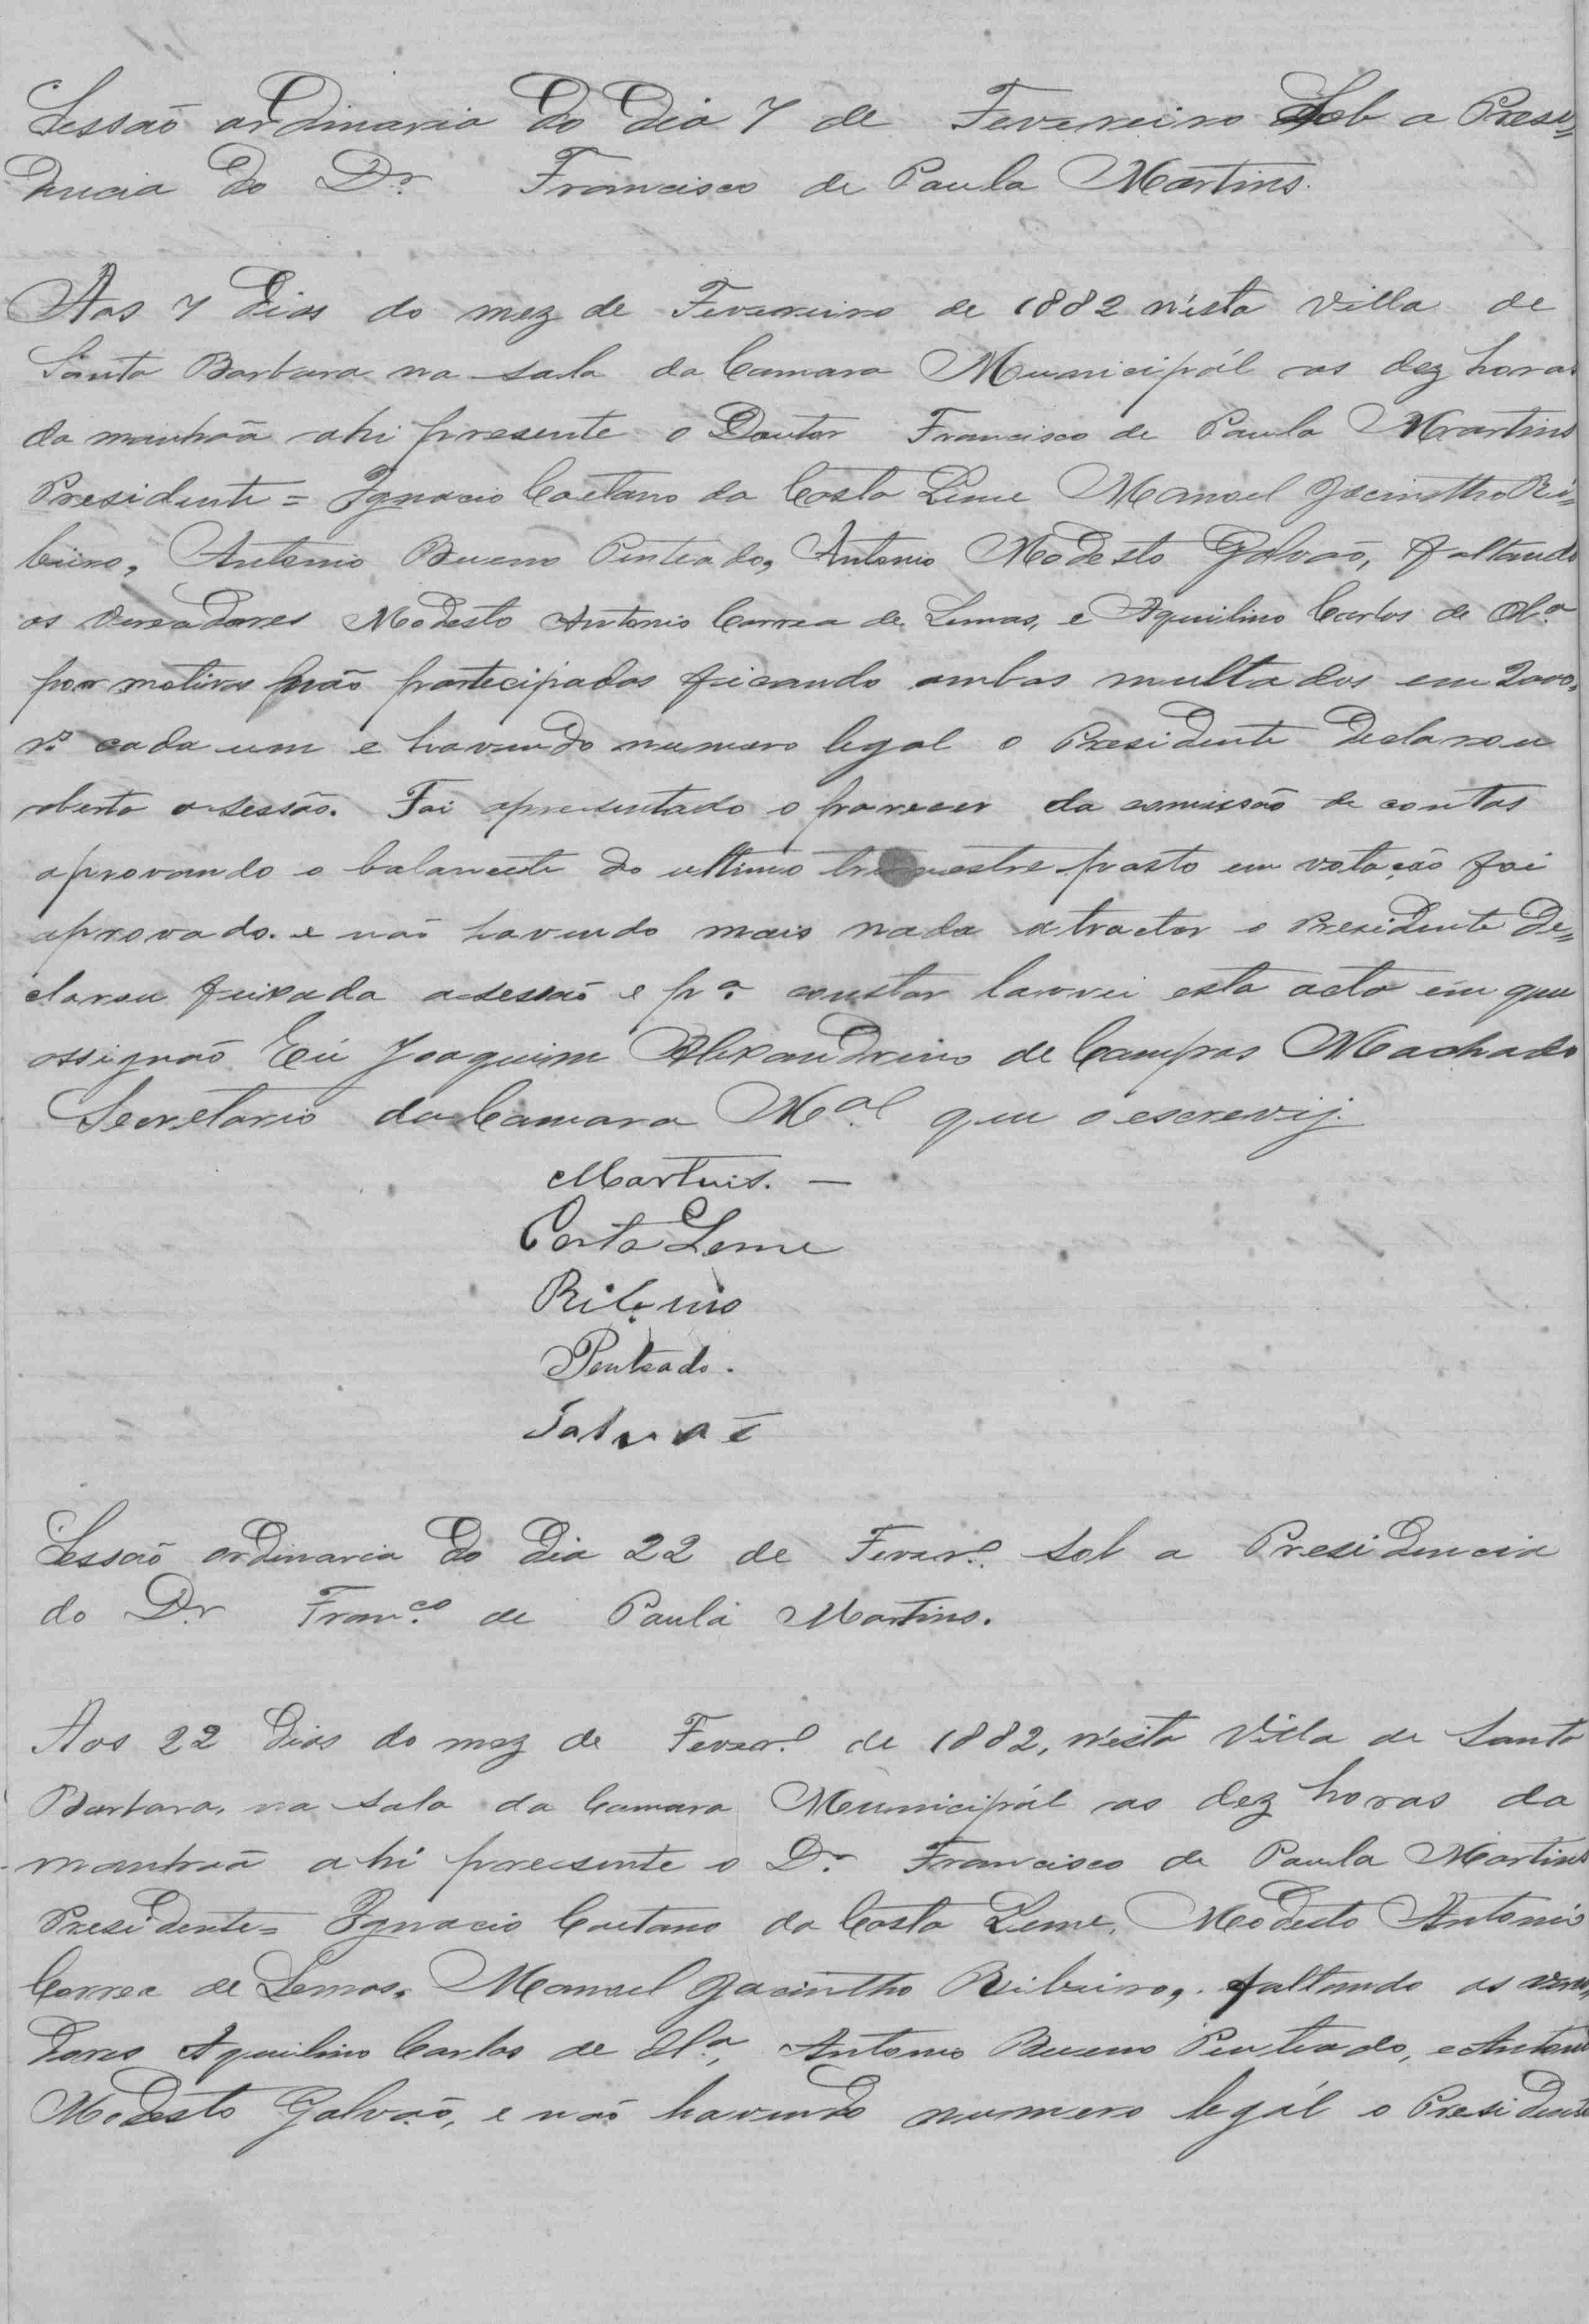 Sessão ordinaria do dia 7 de Fevereiro Sob a Presi=
dencia do Dr. Francisco de Paula Martins.
Aos 7 dias do mez de Fevereiro de 1882 n'esta Villa de
Santa Barbara na sala da Camara Municipál as dez horas
da manhoã ahi presente o Doutor Francisco de Paula Martins
Presidente = Ignacio Caetano da Costa Leme Manoel Jacinttho Ri=
beiro, Antonio Bueno Penteado, Antonio Modesto Galvaõ, faltando
os Vereadores Modesto Antonio Correa de Lemos, e Aquilino Carlos de Olª
por motivos não partecipados ficando ambos multados em 2000,
rs. cada um e havendo numero legal o Presidente Declarou
aberta a sessão. Foi apresentado o parecer da comissão de contas
aprovando o balancete do ultimo trimestre posto em votação foi
aprovado. e não havendo mais nada atractar o Presidente De=
clarou feixada a sessão e pª constar lavrei esta acta em que
assignaõ Eú Joaquim Alexandrino de Campos Machado
Secretario da Camara Mal. que o escrevij.
Martins. —
Costa Leme
Ribeiro
Penteado.
Galvaõ
Sessão ordinaria do dia 22 de Feverº sob a Presidencia
do Dr Franco. de Paula Martins.
Aos 22 Dias do mez de Feverº de 1882, n'esta Villa de Santa
Barbara, na sala da Camara Municipál as dez horas da
manhoã ahi presente o Dr Francisco de Paula Martins
Presidente = Ignacio Caetano da Costa Leme, Modesto Antonio
Correa de Lemos, Manoel Jacinttho Ribeiro, faltando os verea
dores Aquilino Carlos de Olª, Antonio Bueno Penteado, e Antonio
Modesto Galvaõ, e naõ havendo numero legál o Presidente